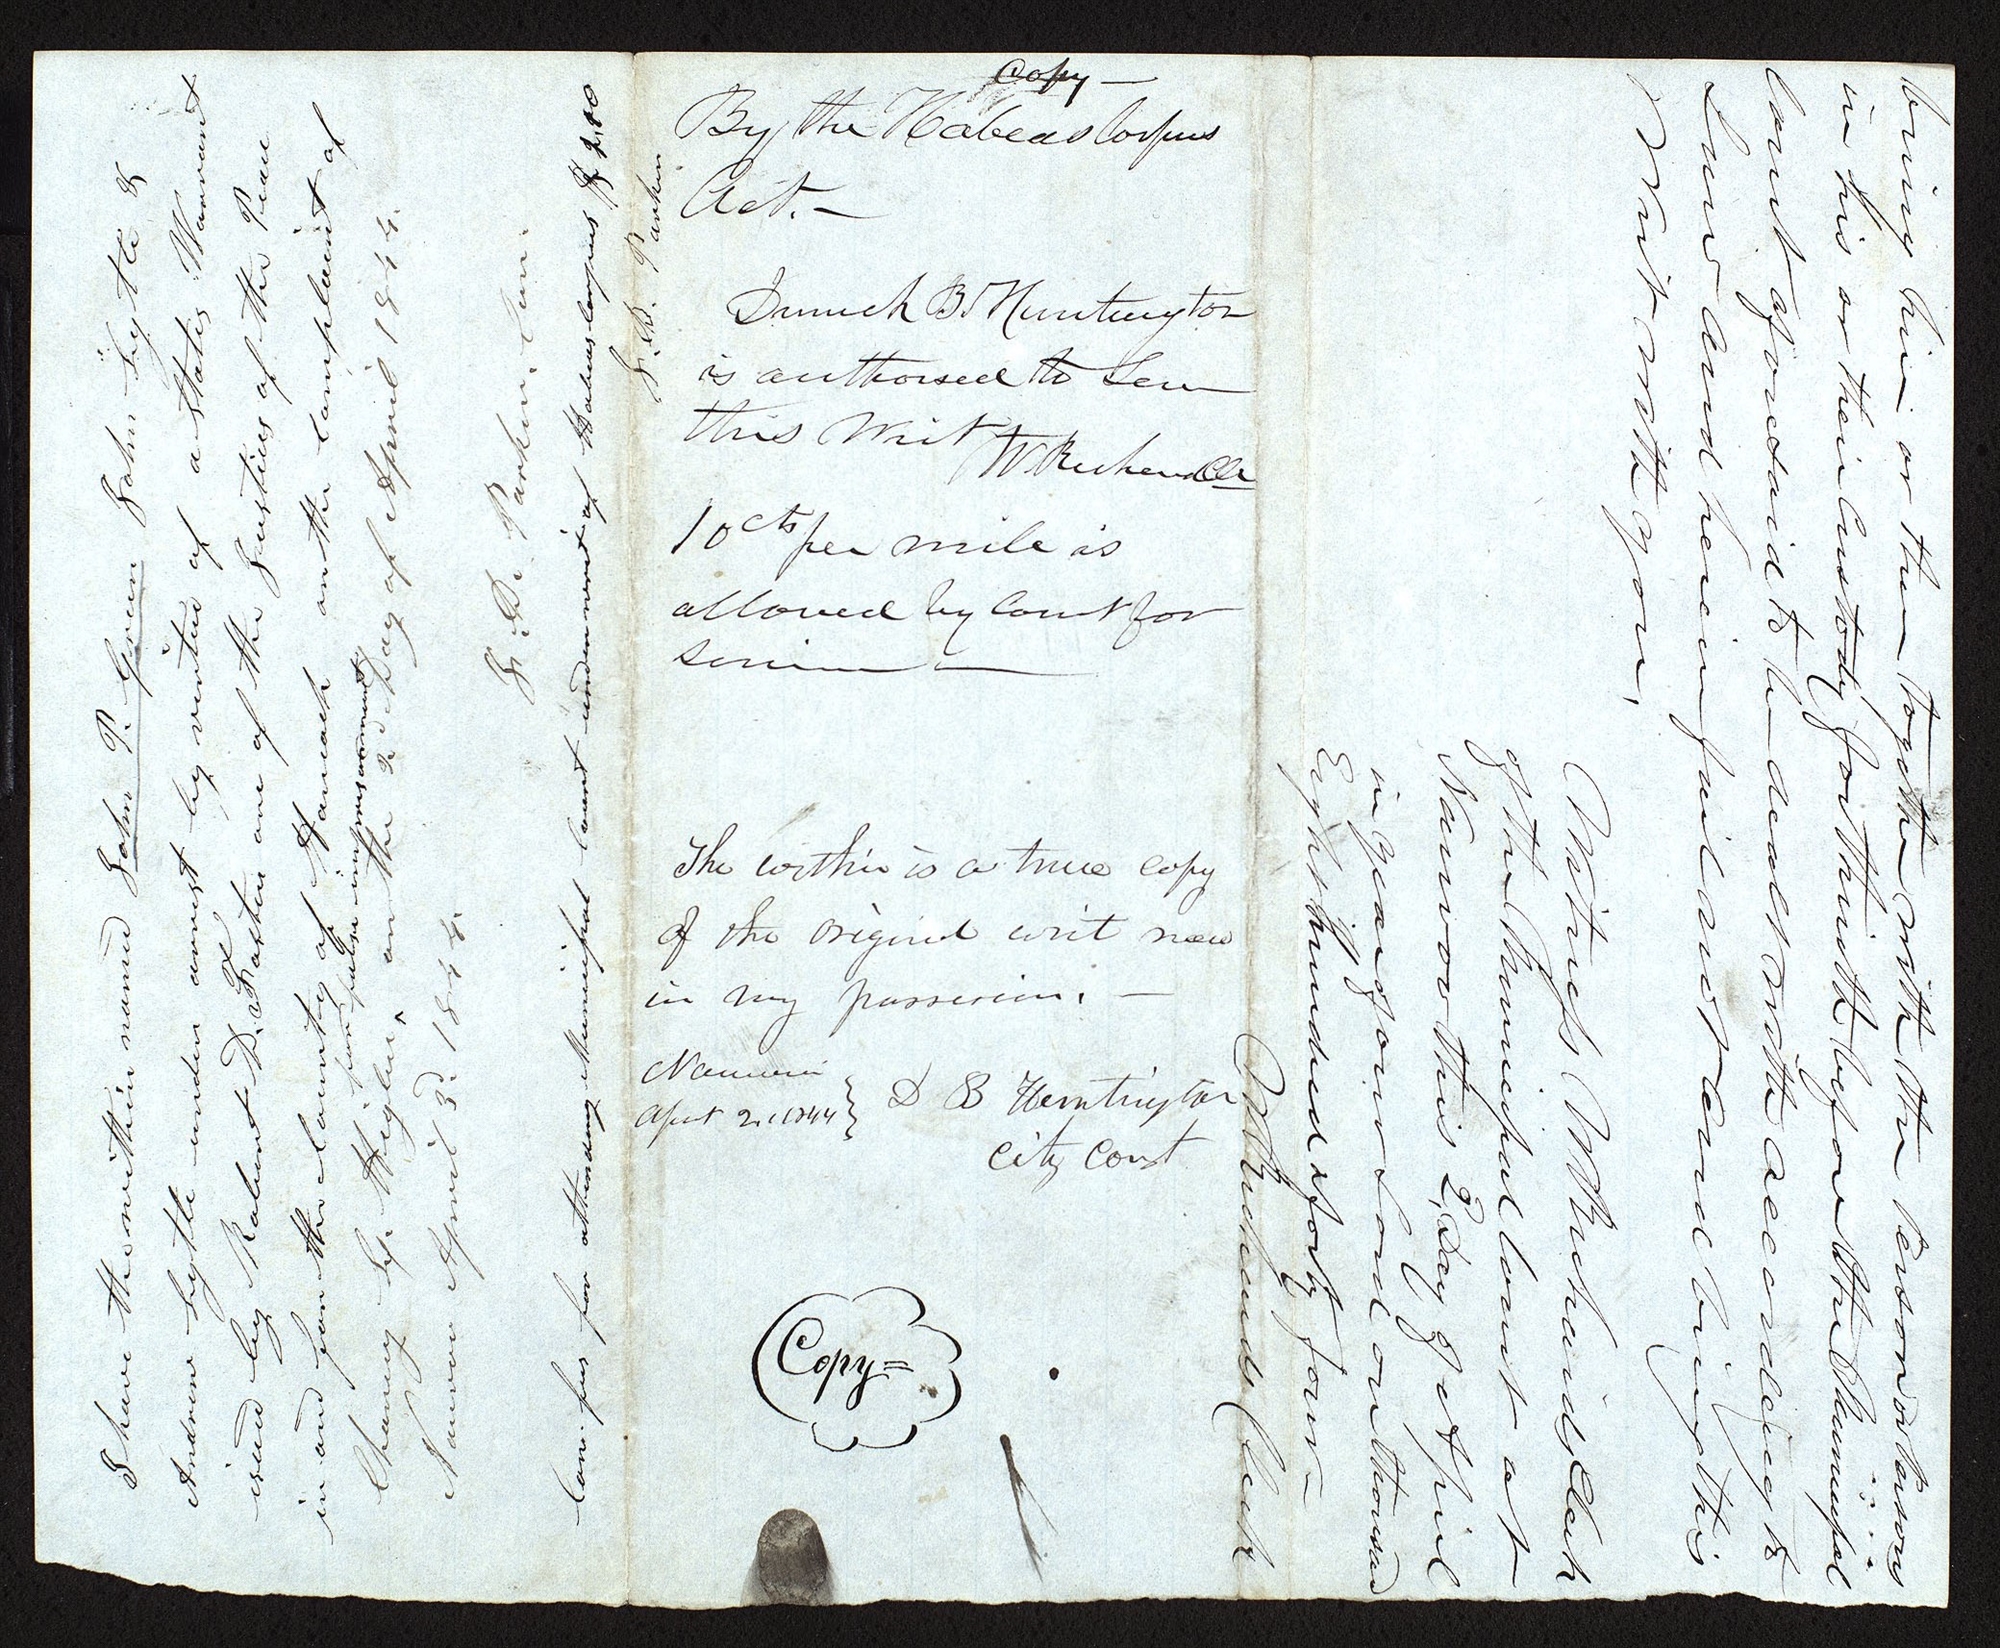 bring him or them together with the Person or Persons
in his or their Custody forthwith before the Municipal
Court aforesaid to be dealt with according to
Law and herein fail not and bring this
Writ with you.
Witness W Richards Clerk
of the Municipal Court at
Nauvoo this 2d Day of April
in year of our Lord one thousand
Eight hundred & forty four—
W Richards Clerk
Copy—
By the Habeas Corpus
Act.—
Dimick B. Huntington
is authorised to
this Writ
W. Richards Clk
10 cts per mile is
allowed by Court for
The within is a true copy
of the original writ now
in my possession. —
Nauvoo
April 2. 1844
D B Huntington
City Const
Copy=
I have the within named John P. Green John Lytle &
Andrew Lytle under arrest by virtue of a States Warrant
isued by Robert D. Foster one of the Justices of the Peace
in and for the County of Hancock on the complaint of
for false imprisonment
on the 2d Day of April 1844.
Nauvoo April 3d. 1844
J. D. Parker. Con.
Con. fees for attending Municipal Court under writ of Habeas Corpus $2,00
J. D. Parker